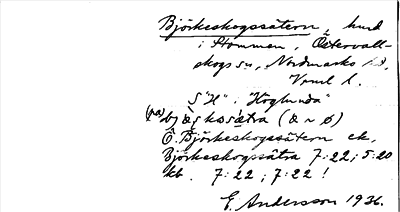 Björkeskogssätern, hmd
i Stommen, Östervall-
skogs sn, Nordmarks hd,
Vrml l.
S "H". "Höglunda"
(på) bjäskosätra (æ ~ ø)
Ö. Björkeskogssätern ek.
Björkeskogssätra 7:22; 5:20
kb. 7:22; 7:22!
E. Andersson 1936.